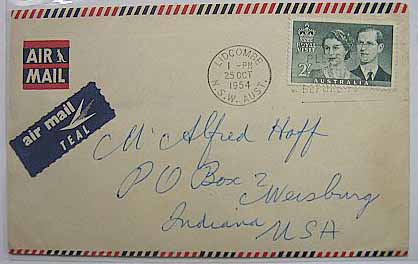 AIR
MAIL
air mail
TEAL
LIDCOMBE
1 - PM
25 OCT
1954
N.S.W. AUST.
ROYAL
VISIT
2/-
AUSTRALIA
Mr Alfred Hoff
PO Box 2
Weisburg
Indiana
USA